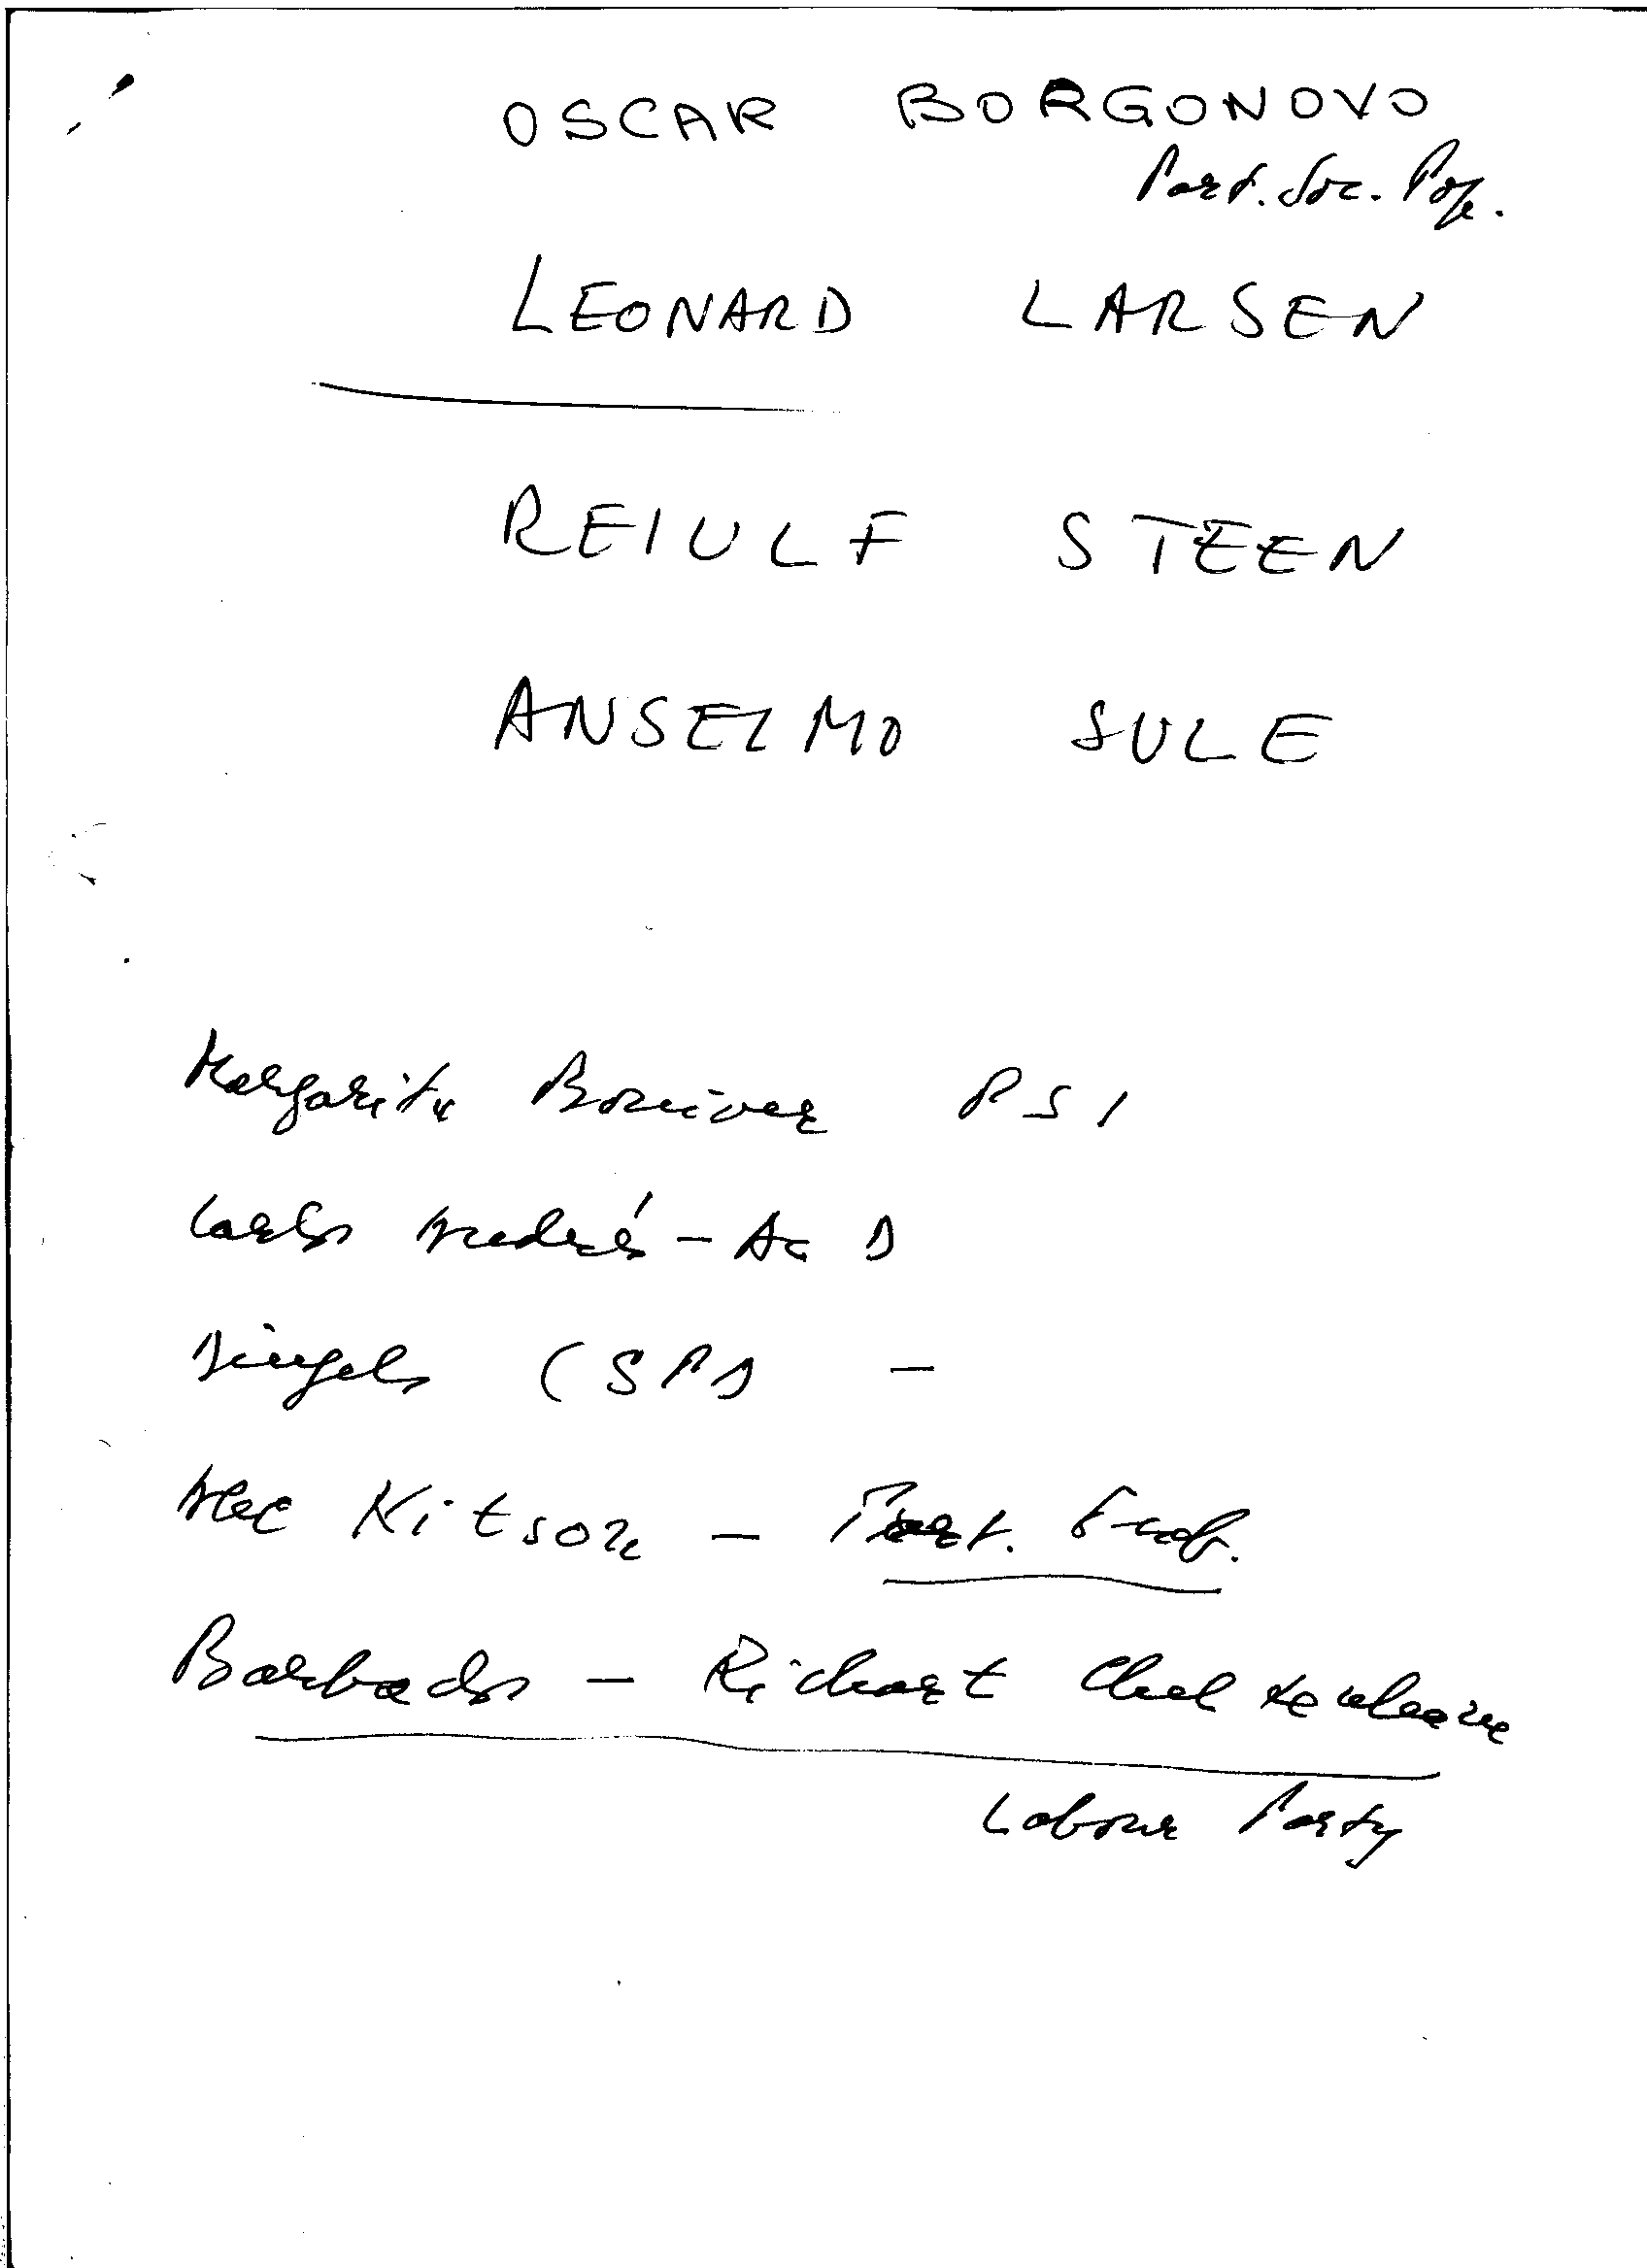 OSCAR BORGONOVO
Part. Soc. Pop.
LEONARD LARSEN
REIULF STEEN
ANSELMO SULE
Margarita Boniver PSI
Carlos Andrés - Ac D
Dingels (SPD -
Alec Kitson -
Barbados - Richart Cheltenham
Labour Party